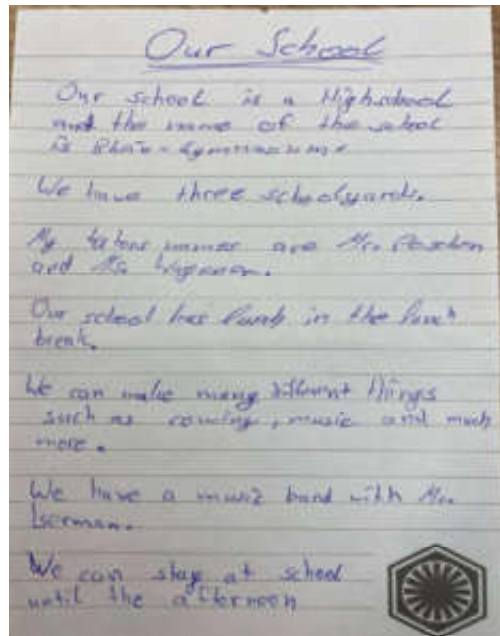 Our School
Our school is a Highschool
and the name of the school
is Rhein-Gymnasium.
We have three schoolyards.
My names are Mr.
and Ms.
Our school has lunch in the lunch
break.
We can make many different things
such as rowing, music and much
more.
We have a music band with Mr.
Iserman.
We can stay at school
until the afternoon